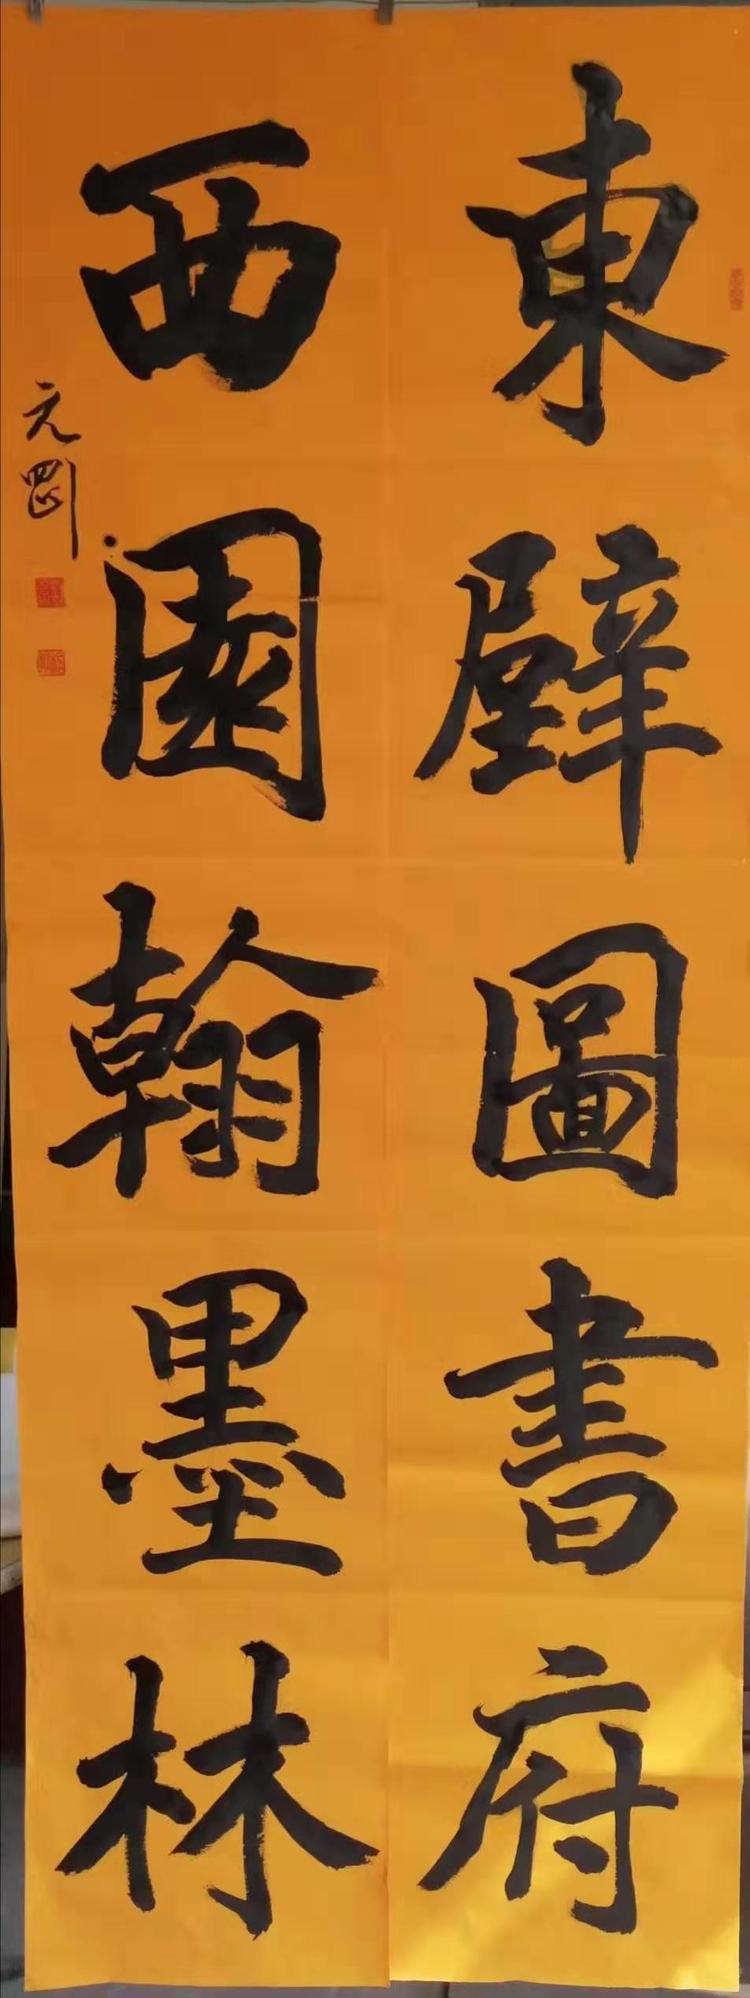 東壁圖書府
西園翰墨林
元罡